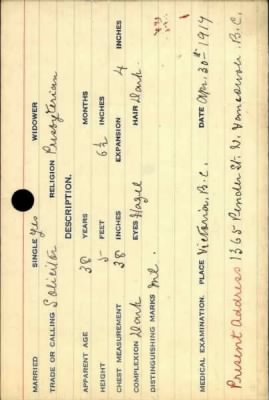 MARRIED SINGLE Yes WIDOWER
TRADE OR CALLING Solicitor RELIGION Presbyterian
DESCRIPTION.
APPARENT AGE 38 YEARS MONTHS
HEIGHT 5 FEET 6½ INCHES
CHEST MEASUREMENT 38 INCHES EXPANSION 4 INCHES
COMPLEXION Dark EYES Hazel HAIR Dark
DISTINGUISHING MARKS
MEDICAL EXAMINATION. PLACE Victoria, B.C. DATE Apr. 30th 1917
Present Address 1365 Pender St. W. Vancouver B.C.